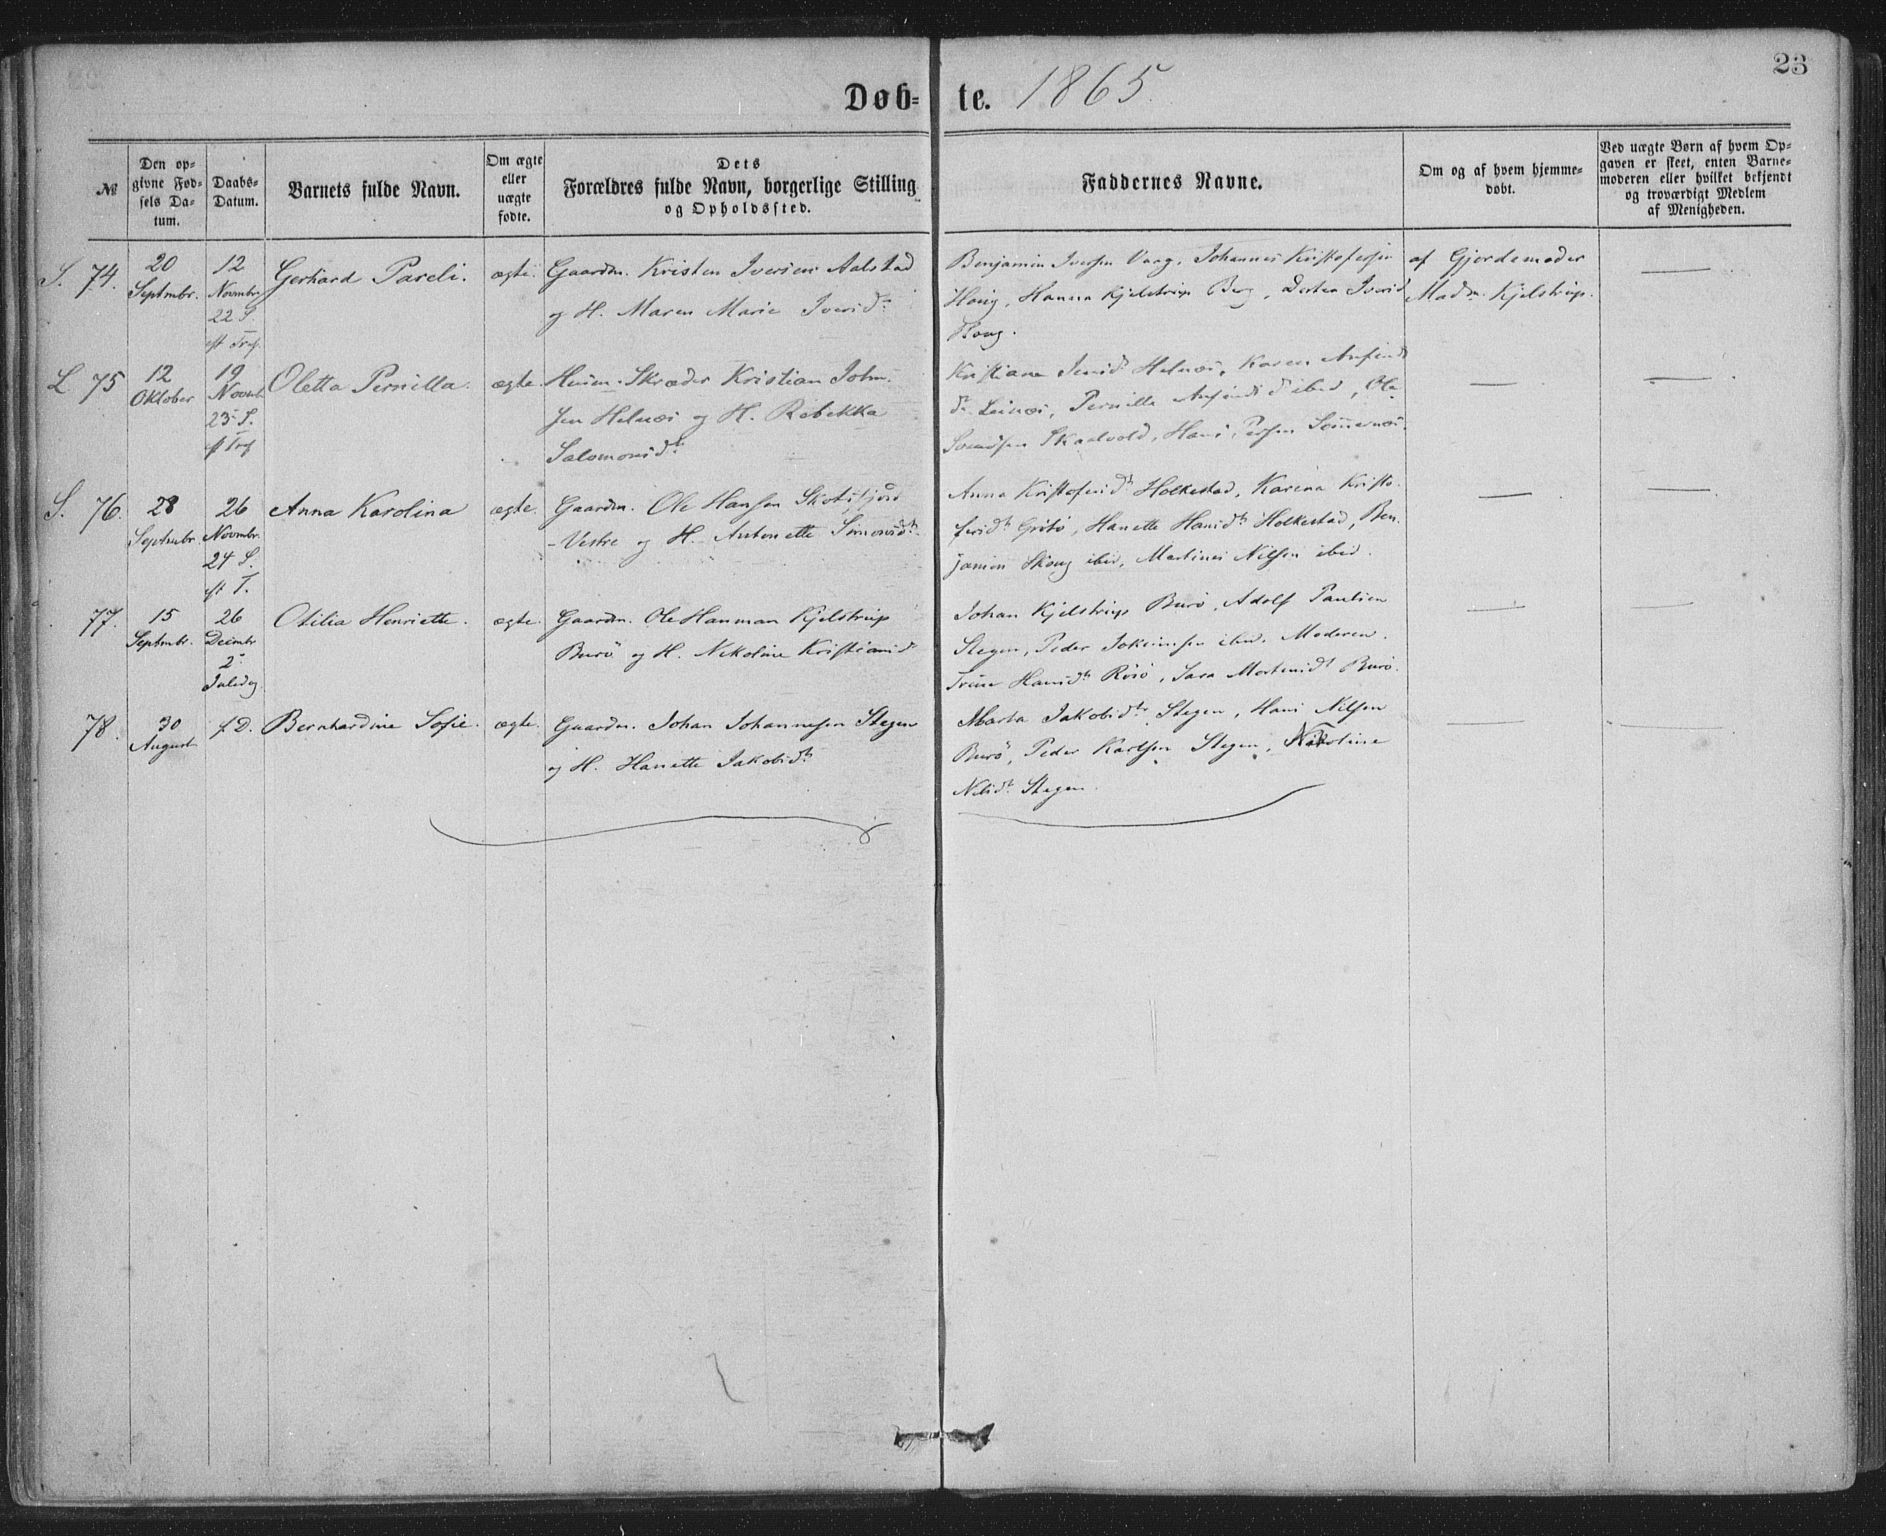 23
Døb- te. 1865.
№
Den op-
givne Fød-
sels Da-
tum.
Daabs-
Datum.
Barnets fulde Navn.
Om ægte
eller
uægte
fødte.
Dets
Forældres fulde Navn, borgerlige Stilling
og Opholdssted.
Faddernes Navne.
Om og af hvem hjemme-
døbt.
Ved uægte Børn af hvem Op-
gaven er skeet, enten Barne-
moderen eller hvilket bekjendt
og troværdigt Medlem
af Menigheden.
S. 74.
20
Septmbr.
12
Novmbr
22 S.
eft Tref.
Gerhard Pareli.
ægte.
Gaardm. Kristen Iversen Aalstad
og H. Maren Marie Iversd.
Benjamin Iversen Vaag, Johannes Kristofersen
Haug, Hanna Kjelstrup Berg, Dortea Iversd
af Gjordemoder
Madm. Kjelstrup.
L 75
12
Oktober
19
Novmb
23 S.
eft Tref
Oletta Pernilla.
ægte.
Huusm. Skræder Kristian John-
sen Helnes og H. Rebekka
Salomonsdt
Kristiane Helnes, Karen Anfind
dt Leines, Pernille Anfindsd ibid, Ole
Skaalvold, Hans Persen
S. 76.
28
Septmbr.
26
Novmbr.
24 S.
eft T.
Anna Karolina
ægte.
Gaardm. Ole Hansen Skotsfjord
-Vestre og H. Antonette Simonsdt.
Anna Kristofersdt Holkestad, Karina Kristo-
fersdt Grøtø, Hanette Hansdt Holkestad, Ben-
jamin Skoug ibid, Martines Nilsen ibid.
77.
15
Septmbr.
26
Decmbr
2.
Juledag
Otilia Henriette.
ægte.
Gaardm. Ole Hanman Kjelstrup
Burø og H. Nikoline Kristiansd
Johan Kjelstrup Burø, Adolf Paulsen
Stegen, Peder Jokumsen ibid. Moderen.
Trine Hansdt Røsø, Sara Mortensdt Burø.
78.
30
August
s. D.
Bernhardine Sofie.
ægte.
Gaardm. Johan Johannesen Stegen
og H. Hanette Jakobsdt
Marta Jakobsdt Stegen, Hans Nilsen
Burø, Peder Karlsen Stegen, Nikoline
Nilsdt Stegen.